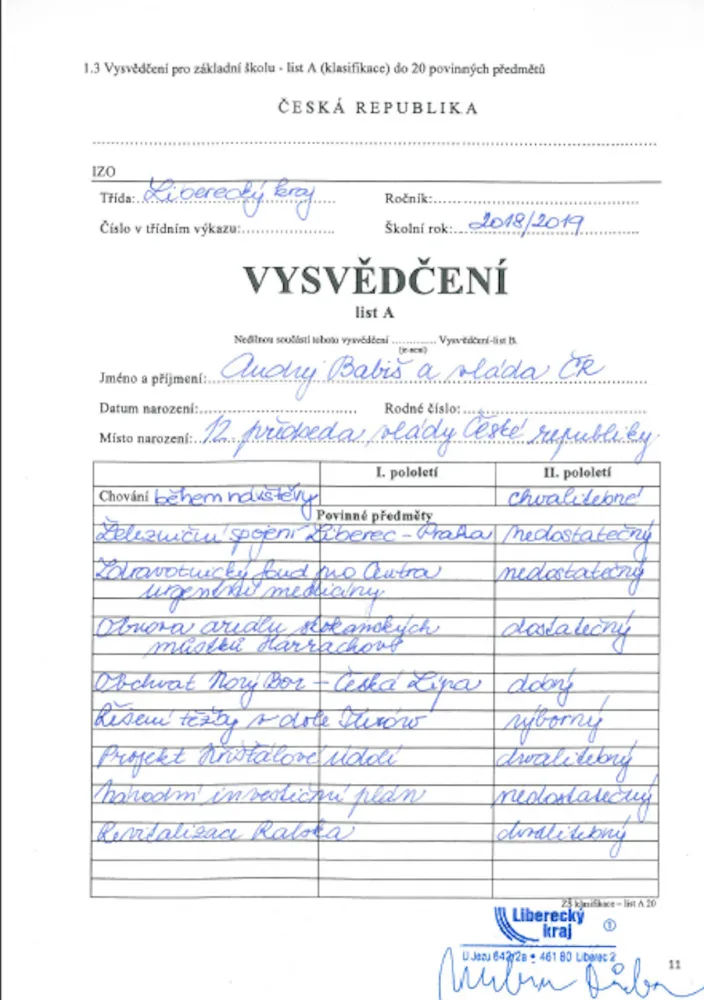 1.3 Vysvědčení pro základní školu - list A (klasifikace) do 20 povinných předmětů
ČESKÁ REPUBLIKA
IZO
Třída: Liberecký kraj Ročník:
Číslo v třídním výkazu: Školní rok: 2018/2019
VYSVĚDČENÍ
list A
Nedílnou součástí tohoto vysvědčení ............ Vysvědčení-list B.
(je-není)
Jméno a příjmení: Andrej Babiš a vláda ČR
Datum narození: Rodné číslo:
Místo narození: 12. předseda vlády České republiky
I. pololetí II. pololetí
Chování během návštěvy chvalitebné
Povinné předměty
Železniční spojení Liberec - Praha nedostatečný
Zdravotnický fond pro Centra nedostatečný
urgentní medicíny
Obnova areálu skokanských dostatečný
můstků Harrachov
Obchvat Nový Bor - Česká Lípa dobrý
Řešení těžby v dole Turów výborný
Projekt Křišťálové údolí chvalitebný
Národní investiční plán nedostatečný
Revitalizace Ralska chvalitebný
ZŠ klasifikace - list A 20
Liberecký
kraj
1
U Jezu 642/2a • 461 80 Liberec 2
11